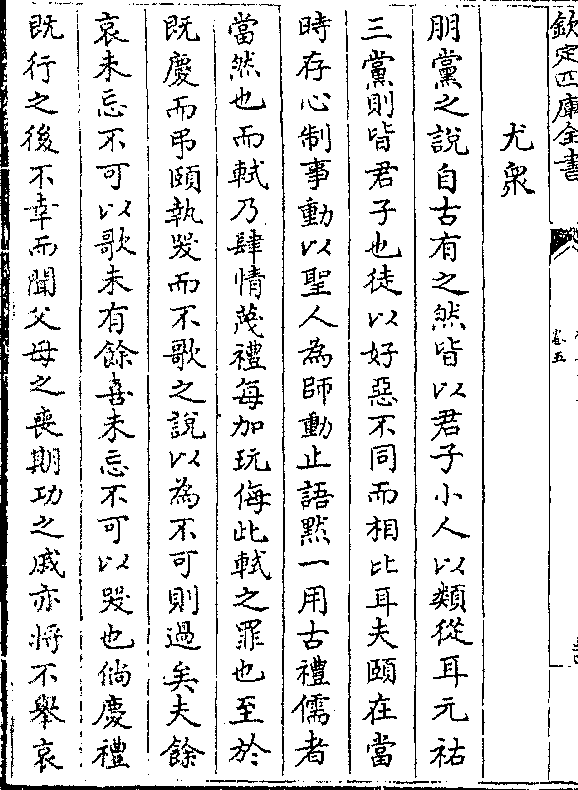 欽定四庫全書
卷五
尤衆
朋黨之說自古有之然皆以君子小人以類從耳元祐
三黨則皆君子也徒以好惡不同而相比耳夫頤在當
時存心制事動以聖人為師動止語黙一用古禮儒者
當然也而軾乃肆情蔑禮每加玩侮此軾之罪也至於
既慶而弔頤執哭而不歌之說以為不可則過矣夫餘
哀未忘不可以歌未有餘喜未忘不可以哭也倘慶禮
既行之後不幸而聞父母之喪期功之戚亦將不舉哀